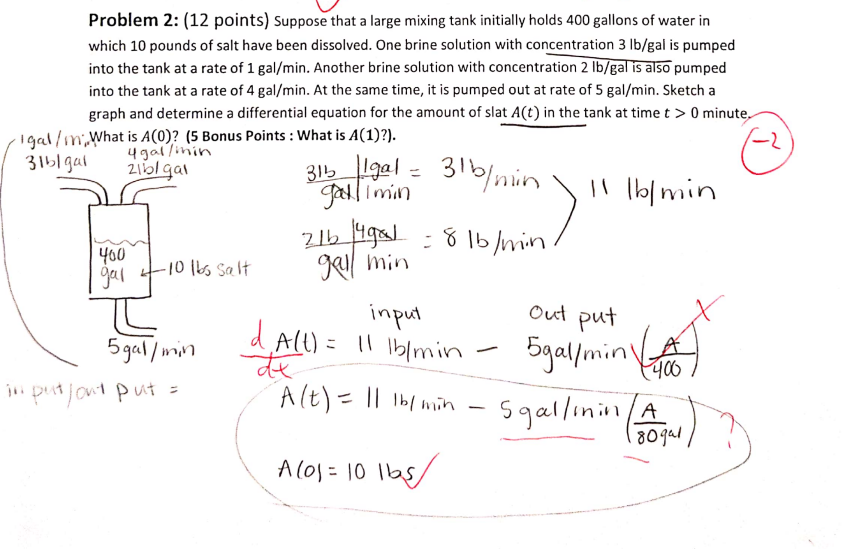 Problem 2: (12 points) Suppose that a large mixing tank initially holds 400 gallons of water in
which 10 pounds of salt have been dissolved. One brine solution with concentration 3 lb/gal is pumped
into the tank at a rate of 1 gal/min. Another brine solution with concentration 2 lb/gal is also pumped
into the tank at a rate of 4 gal/min. At the same time, it is pumped out at rate of 5 gal/min. Sketch a
graph and determine a differential equation for the amount of slat A(t) in the tank at time t > 0 minute.
What is A(0)? (5 Bonus Points : What is A(1)?).
-2
1gal/min
3lb/gal
4gal/min
2lb/gal
400
gal
10 lbs salt
5gal/min
input/out put =
3lb | 1gal = 3lb/min
gal | 1min
11 lb/min
2lb | 4gal = 8 lb/min
gal | min
input
out put
d/dt A(t) = 11 lb/min - 5gal/min (A/400)
A(t) = 11 lb/min - 5gal/min (A/80gal)
?
A(0) = 10 lbs